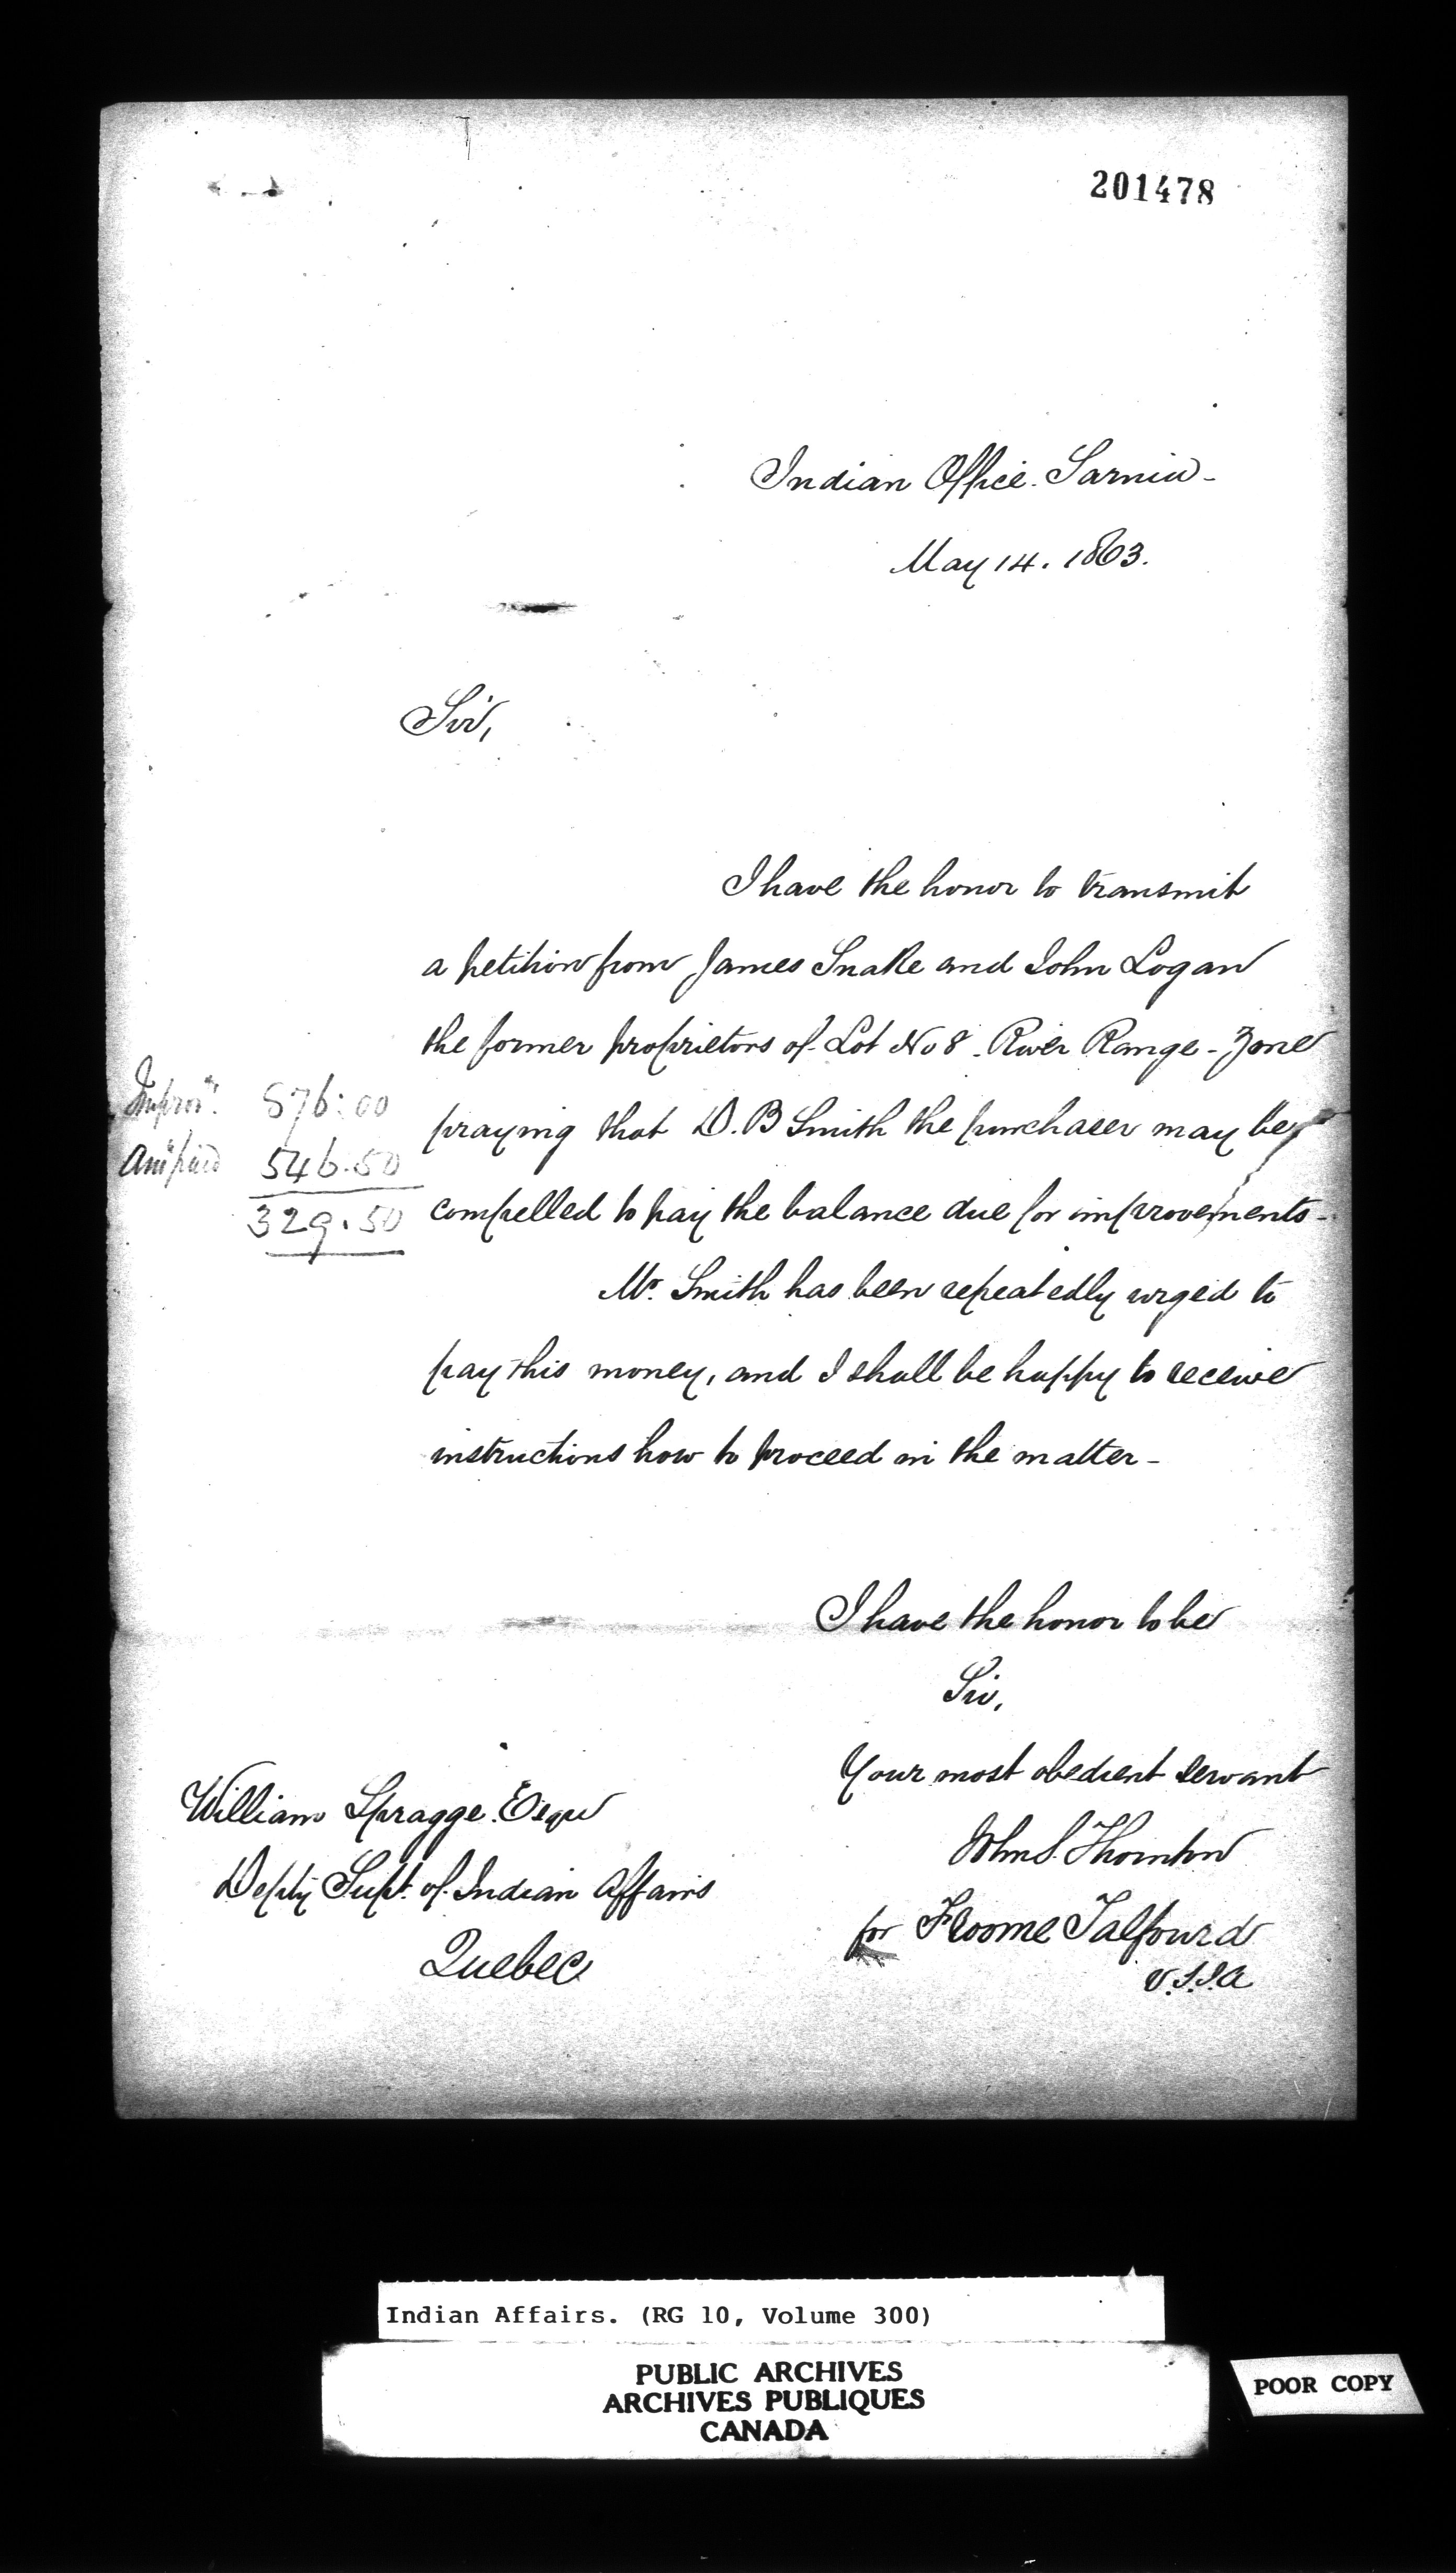 201478
Indian Office. Sarnia -
May 14. 1863.
Sir,
I have the honor to transmit
a petition from James Snake and John Logan
the former proprietors of Lot No 8. River Range - Zone
praying that D. B Smith the purchaser may be
compelled to pay the balance due for improvements -
Improvts. 876:00
Amt paid 546.50
329.50
Mr. Smith has been repeatedly urged to
pay this money, and I shall be happy to receive
instructions how to proceed in the matter -
I have the honor to be
Sir,
Your most obedient servant
John S. Thornton
for Froome Talfourd
V.S.I.A
William Spragge. Esqre
Depty Supt. of Indian Affairs
Quebec
Indian Affairs. (RG 10, Volume 300)
PUBLIC ARCHIVES
ARCHIVES PUBLIQUES
CANADA
POOR COPY